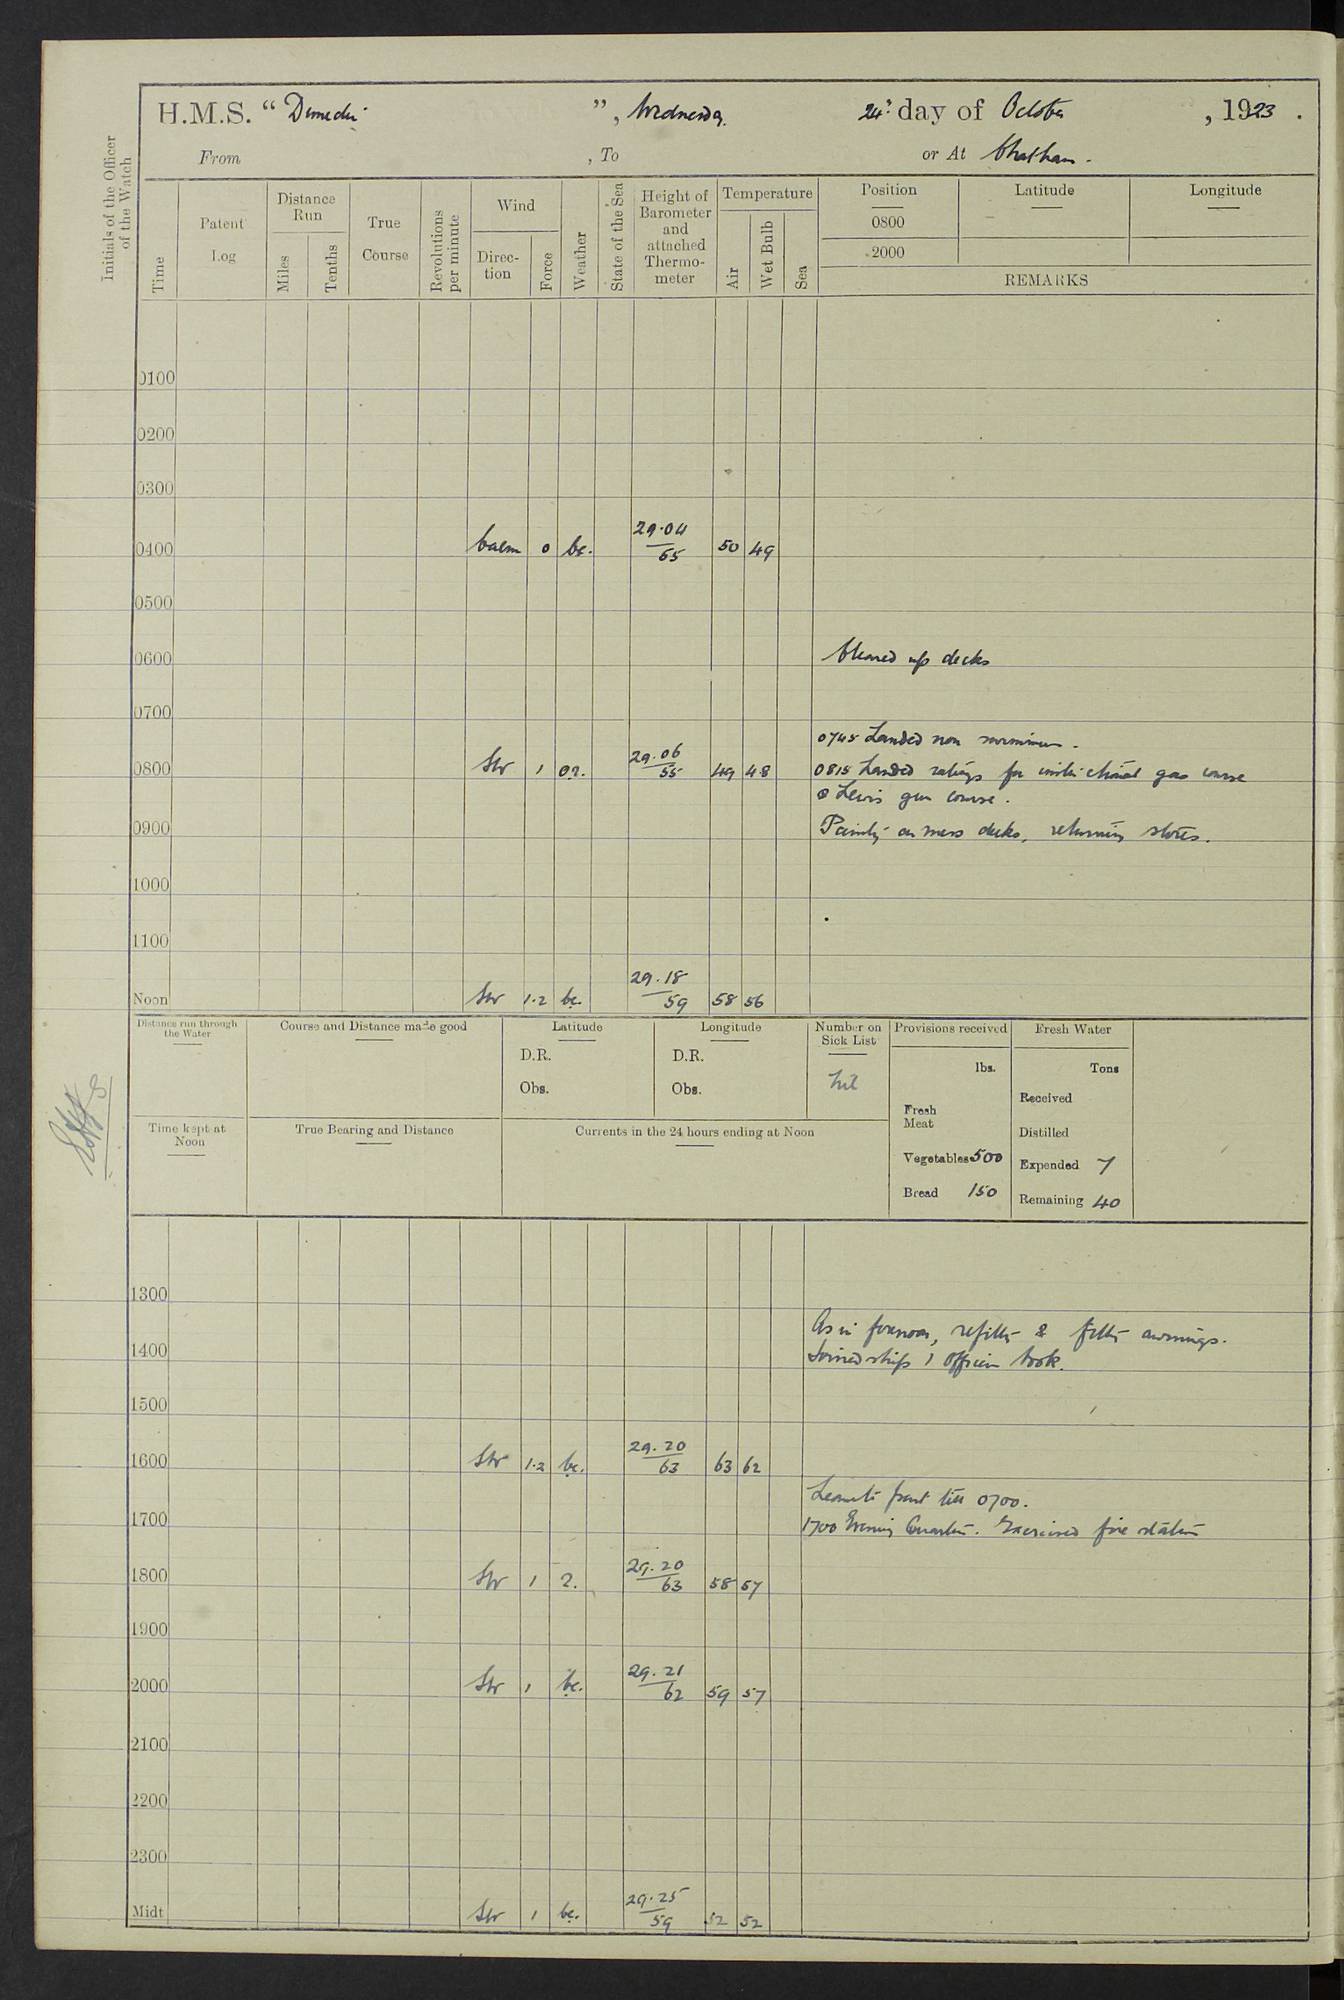 H.M.S. "Dunedin", Wednesday 24th day of October, 1923.
From , To or At Chatham.
Initials of the Officer of the Watch
Time
Patent Log
Distance Run
Miles
Tenths
True Course
Revolutions per minute
Wind
Direction
Force
Weather
State of the Sea
Height of Barometer and attached Thermometer
Temperature
Air
Wet Bulb
Sea
Position Latitude Longitude
0800
2000
REMARKS
0100
0200
0300
0400 Calm 0 bc. 29.04 55 50 49
0500
0600 Cleared up decks
0700
0745 Landed non swimmers.
0800 SW 1 29.06 55 49 48 0815 Landed ratings for instructional gas course
& Lewis gun course.
0900 Painting on mess decks, returning stores.
1000
1100
Noon SW 1.2 bc. 29.18 59 58 56
Distance run through the Water
Course and Distance made good
Latitude
D.R.
Obs.
Longitude
D.R.
Obs.
Number on Sick List
Nil
Provisions received
lbs.
Fresh Meat
Vegetables 500
Bread 150
Fresh Water
Tons
Received
Distilled
Expended 7
Remaining 40
Time kept at Noon
True Bearing and Distance
Currents in the 24 hours ending at Noon
1300
As in forenoon, refitting & fitting awnings.
1400 Joined ship 1 officer
1500
1600 SW 1.2 bc. 29.20 63 63 62
Leave to till 0700.
1700 1700 Evening Quarters. Exercised fire stations
1800 SW 1 29.20 63 58 57
1900
2000 SW 1 bc. 29.21 62 59 57
2100
2200
2300
Midt SW 1 bc. 29.25 59 52 52